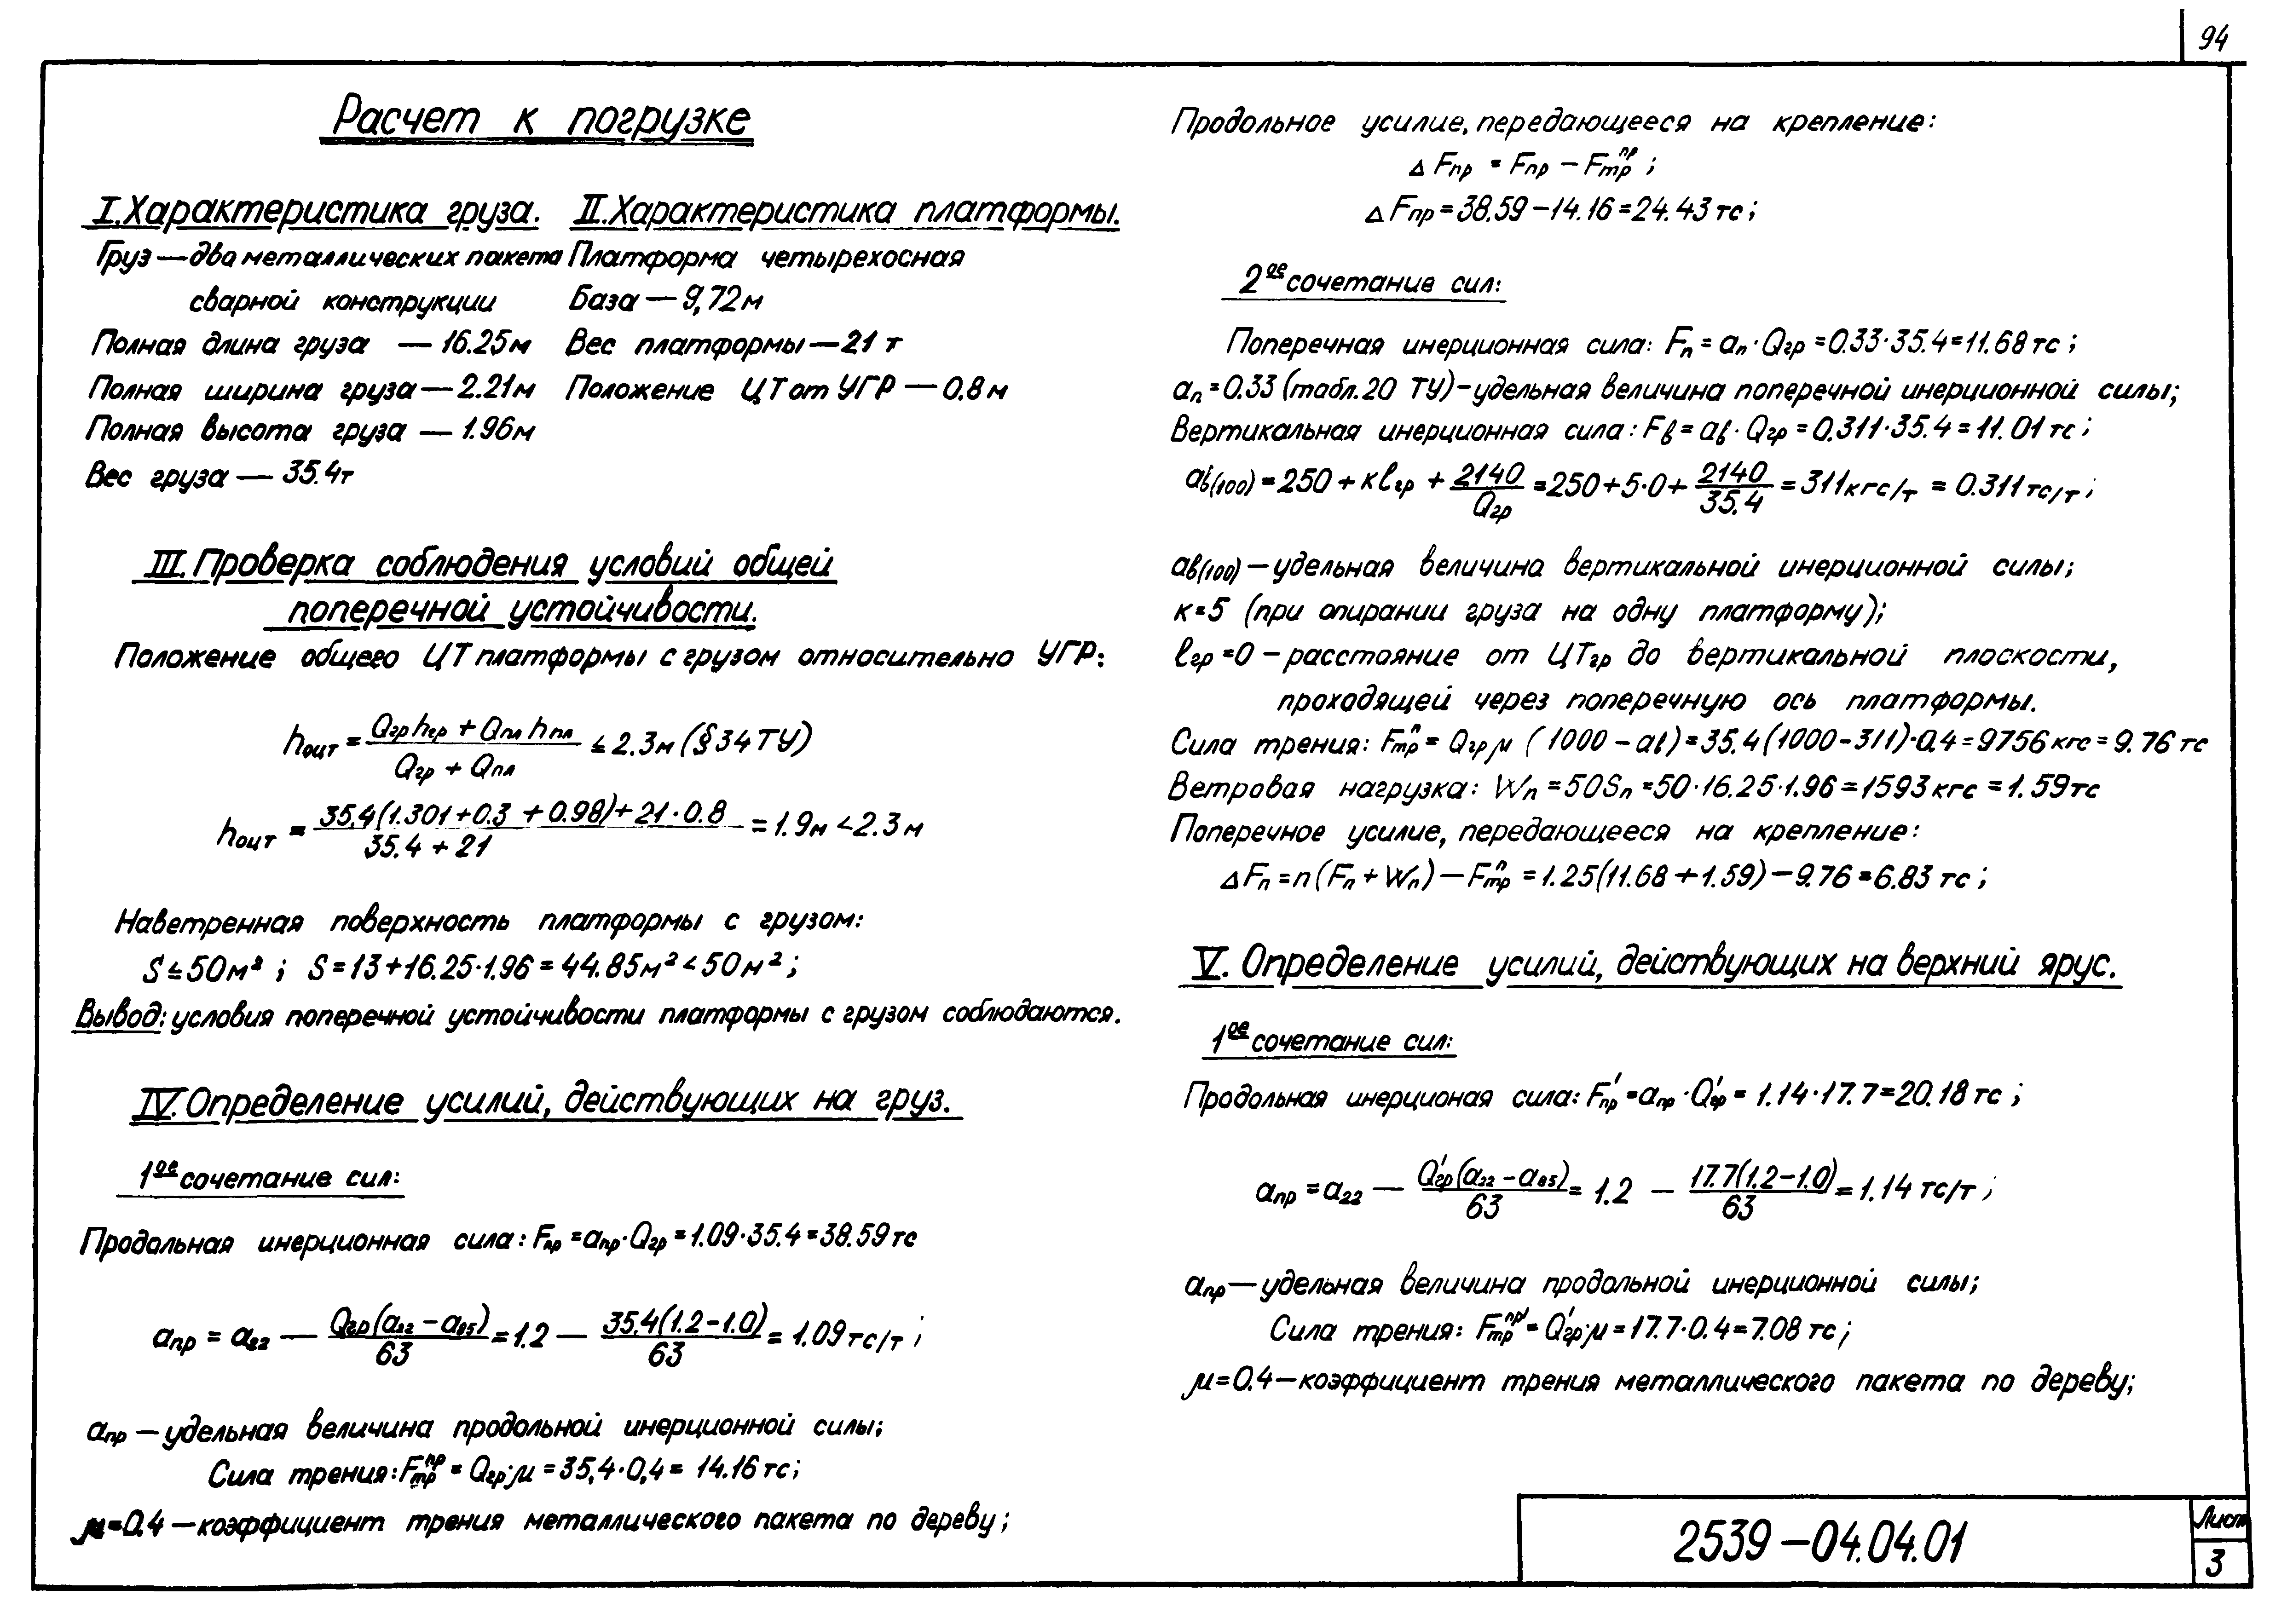 94
Расчет к погрузке
I. Характеристика груза.
Груз — два металлических пакета
сварной конструкции
Полная длина груза — 16.25м
Полная ширина груза — 2.21м
Полная высота груза — 1.96м
Вес груза — 35.4т
II. Характеристика платформы.
Платформа четырехосная
База — 9,72м
Вес платформы — 21 т
Положение ЦТ от УГР — 0.8м
III. Проверка соблюдения условий общей
поперечной устойчивости.
Положение общего ЦТ платформы с грузом относительно УГР:
hоцт = (Qгр hгр + Qпл hпл) / (Qгр + Qпл) ≤ 2.3м (§34 ТУ)
hоцт = (35.4(1.301+0.3+0.98)+21·0.8) / (35.4+21) = 1.9м < 2.3м
Наветренная поверхность платформы с грузом:
S≤50м²; S=13+16.25·1.96=44.85м²<50м²;
Вывод: условия поперечной устойчивости платформы с грузом соблюдаются.
IV. Определение усилий, действующих на груз.
1ое сочетание сил:
Продольная инерционная сила: Fпр = aпр·Qгр = 1.09·35.4 = 38.59 тс
aпр = a22 — Qгр(a22 − a85) / 63 = 1.2 — 35.4(1.2−1.0) / 63 = 1.09 тс/т;
aпр — удельная величина продольной инерционной силы;
Сила трения: Fтр^пр = Qгр·μ = 35,4·0,4 = 14.16 тс;
μ=0.4 — коэффициент трения металлического пакета по дереву;
Продольное усилие, передающееся на крепление:
Δ Fпр = Fпр − Fтр^пр;
Δ Fпр = 38.59 − 14.16 = 24.43 тс;
2ое сочетание сил:
Поперечная инерционная сила: Fп = aп·Qгр = 0.33·35.4 = 11.68 тс;
aп = 0.33 (табл.20 ТУ) — удельная величина поперечной инерционной силы;
Вертикальная инерционная сила: Fв = aв·Qгр = 0.311·35.4 = 11.01 тс;
aв(100) = 250 + кℓгр + 2140 / Qгр = 250+5·0+ 2140 / 35.4 = 311кгс/т = 0.311 тс/т;
aв(100) — удельная величина вертикальной инерционной силы;
к=5 (при опирании груза на одну платформу);
ℓгр=0 — расстояние от ЦТгр до вертикальной плоскости,
проходящей через поперечную ось платформы.
Сила трения: Fтр^п = Qгр μ (1000 − aв) = 35.4(1000−311)·0.4 = 9756 кгс = 9.76 тс
Ветровая нагрузка: Wп = 50Sп = 50·16.25·1.96 = 1593 кгс = 1.59тс
Поперечное усилие, передающееся на крепление:
Δ Fп = n(Fп + Wп) − Fтр^п = 1.25(11.68+1.59) − 9.76 = 6.83 тс;
V. Определение усилий, действующих на верхний ярус.
1ое сочетание сил:
Продольная инерционая сила: F'пр = aпр·Q'гр = 1.14·17.7 = 20.18 тс;
aпр = a22 — Q'гр(a22 − a85) / 63 = 1.2 — 17.7(1.2−1.0) / 63 = 1.14 тс/т;
aпр — удельная величина продольной инерционной силы;
Сила трения: Fтр^пр' = Q'гр·μ = 17.7·0.4 = 7.08 тс;
μ=0.4 — коэффициент трения металлического пакета по дереву;
2539 — 04.04.01
Лист
3